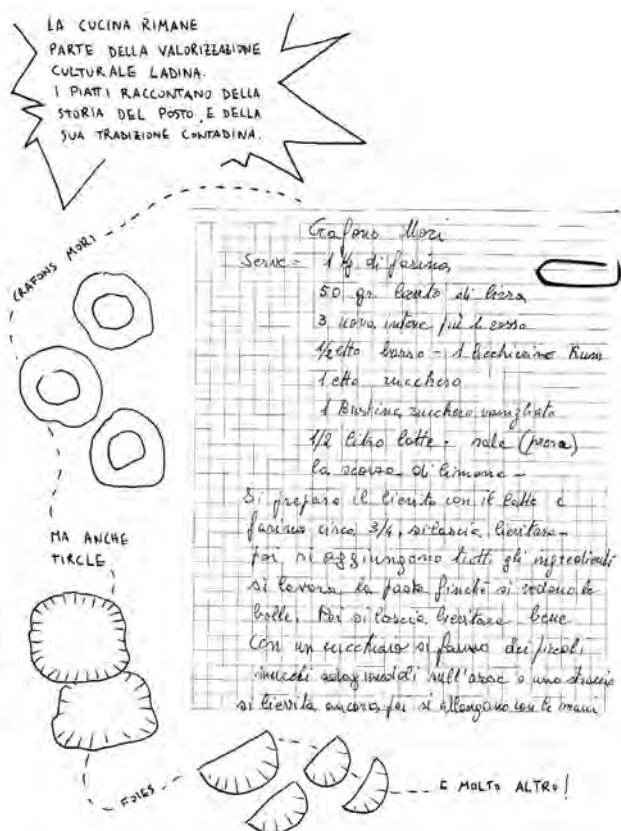 LA CUCINA RIMANE
PARTE DELLA VALORIZZAZIONE
CULTURALE LADINA.
I PIATTI RACCONTANO DELLA
STORIA DEL POSTO E DELLA
SUA TRADIZIONE CONTADINA.
CRAFONS MORI
Crafons Mori
Serve = 1 kg di farina
50 gr. lievito di birra
3 uova intere più 1 rosso
1/2 etto burro - 1 bicchierino Rum
1 etto zucchero
1 Bustina zucchero vanigliato
1/2 litro latte - sale (presa)
la scorza di limone -
Si prepara il lievito con il latte e
farina circa 3/4, si lascia lievitare -
poi si aggiungono tutti gli ingredienti
si lavora la pasta finché si vedono le
bolle. Poi si lascia lievitare bene
Con un cucchiaio si fanno dei piccoli
mucchi adagiandoli sull'asse o uno straccio
si lievita ancora poi si allungano con le mani
MA ANCHE
TIRCLE
FOIES
E MOLTO ALTRO!